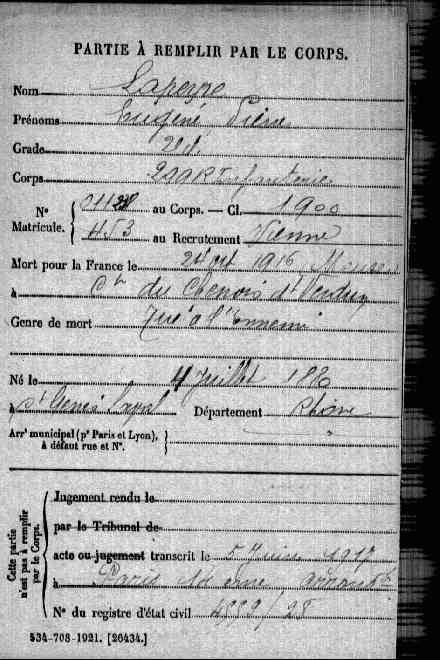 PARTIE À REMPLIR PAR LE CORPS.
Nom Lapeyre
Prénoms Eugène Pierre
Grade 2e cl.
Corps R Infanterie
N° Matricule. { au Corps. — Cl. 1900
453 au Recrutement Vienne
Mort pour la France le 24 oct 1916 Meuse
à du Chenois dt Verdun
Genre de mort Tué à l'Ennemi
Né le 4 Juillet 1880
à St Genis Laval Département Rhône
Arrt municipal (pr Paris et Lyon), à défaut rue et N°. }
Cette partie n'est pas à remplir par le Corps.
Jugement rendu le
par le Tribunal de
acte ou jugement transcrit le 5 Juin 1917
à Paris 14 eme Arrondt
N° du registre d'état civil 4992/28
534-708-1921. [26434.]